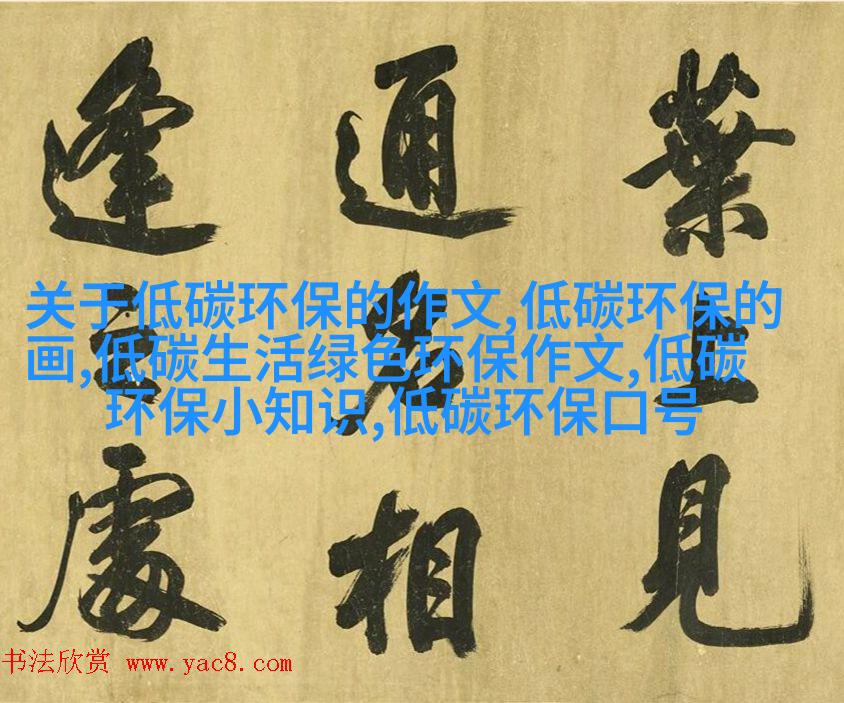 葉上見
通相
逢處
关于低碳环保的作文,低碳环保的
画,低碳生活绿色环保作文,低碳
环保小知识,低碳环保口号
书法欣赏 www.yac8.com